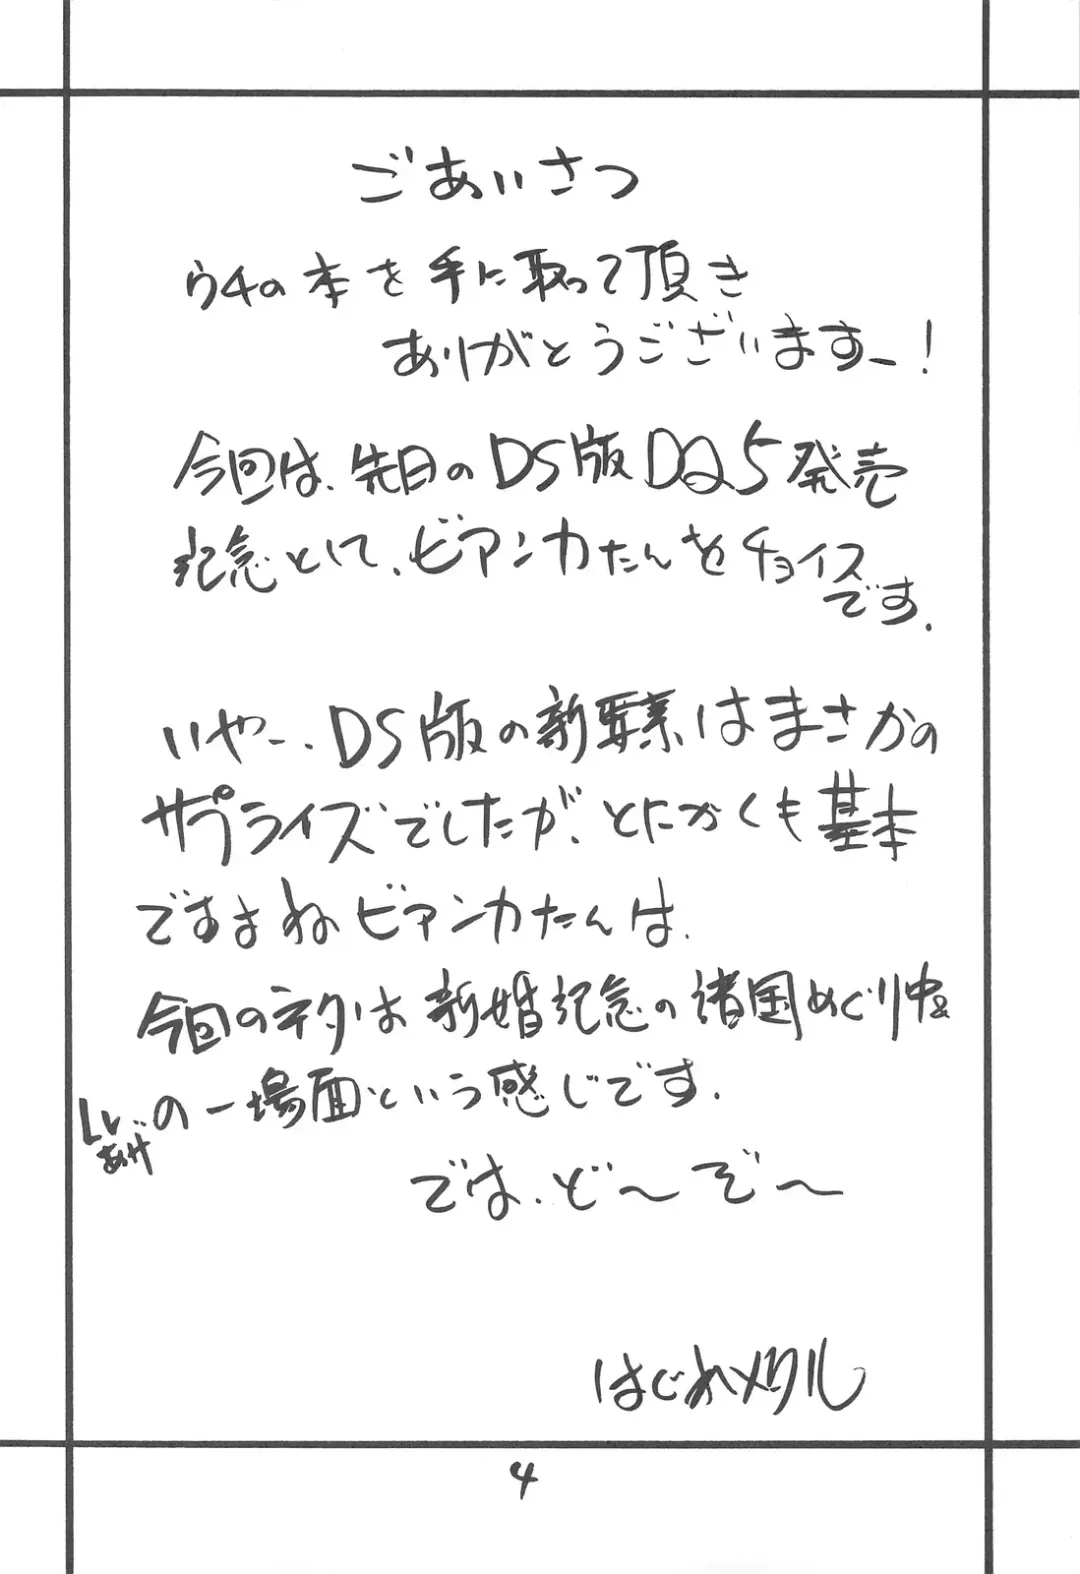 ごあいさつ
ウチの本を手に取って頂き
ありがとうございますー!
今回は、先日のDS版DQ5発売
記念として、ビアンカたんをチョイス
です.
いやー、DS版の新要素はまさかの
サプライズでしたが、とにかくも基本
ですよねビアンカたんは、
今回のネタは新婚記念の諸国めぐり中
の一場面という感じです.
では、ど〜ぞ〜
はじめメタル
4